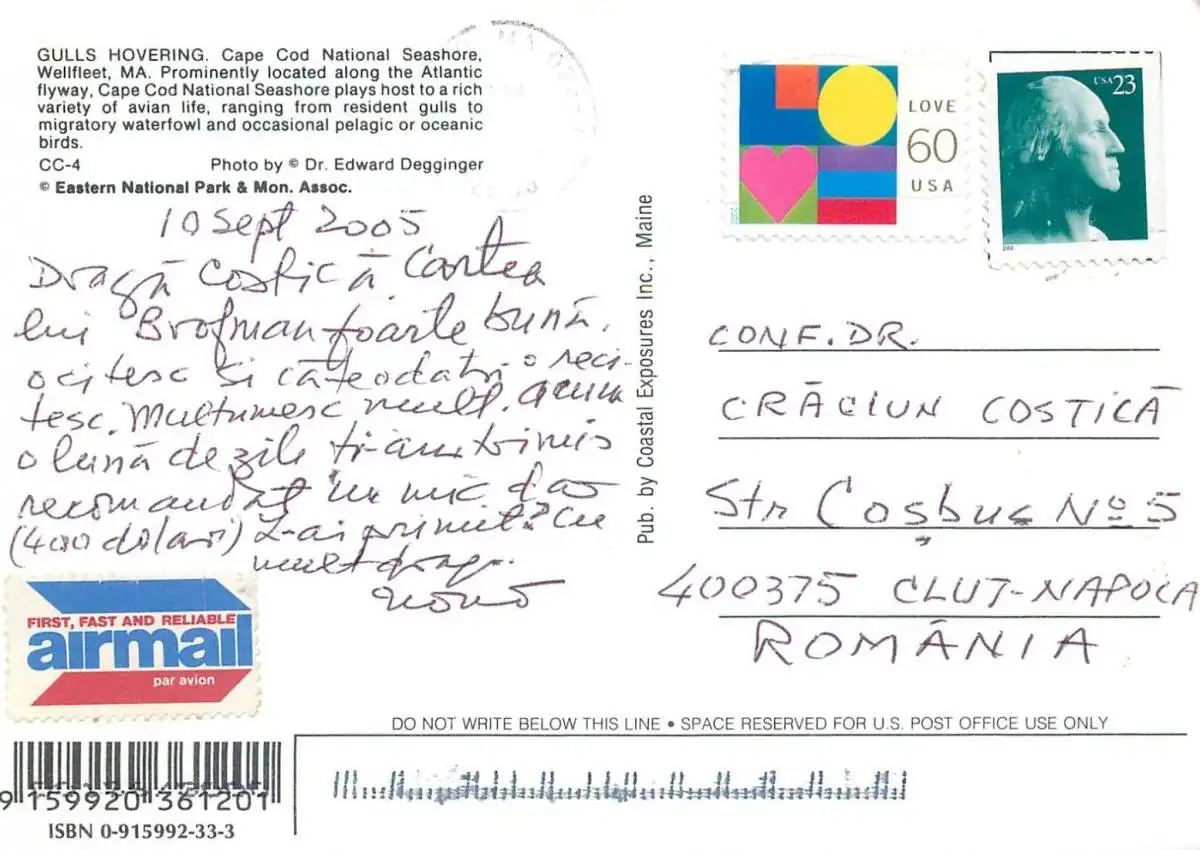 GULLS HOVERING. Cape Cod National Seashore,
Wellfleet, MA. Prominently located along the Atlantic
flyway, Cape Cod National Seashore plays host to a rich
variety of avian life, ranging from resident gulls to
migratory waterfowl and occasional pelagic or oceanic
birds.
CC-4 Photo by © Dr. Edward Degginger
© Eastern National Park & Mon. Assoc.
10 Sept 2005
Dragă Costică Cartea
lui Brofman foarte bună.
o citesc și câteodată o reci-
tesc. Multumesc mult. acum
o lună de zile ti-am trimis
recomandat un mic dar
(400 dolari) L-ai primit? Cu
mult drag.
FIRST, FAST AND RELIABLE
airmail
par avion
9 159920 361201
ISBN 0-915992-33-3
Pub. by Coastal Exposures Inc., Maine
LOVE
60
USA
USA 23
2002
CONF. DR.
CRĂCIUN COSTICĂ
Str Coșbuc No 5
400375 CLUJ-NAPOCA
ROMÂNIA
DO NOT WRITE BELOW THIS LINE • SPACE RESERVED FOR U.S. POST OFFICE USE ONLY